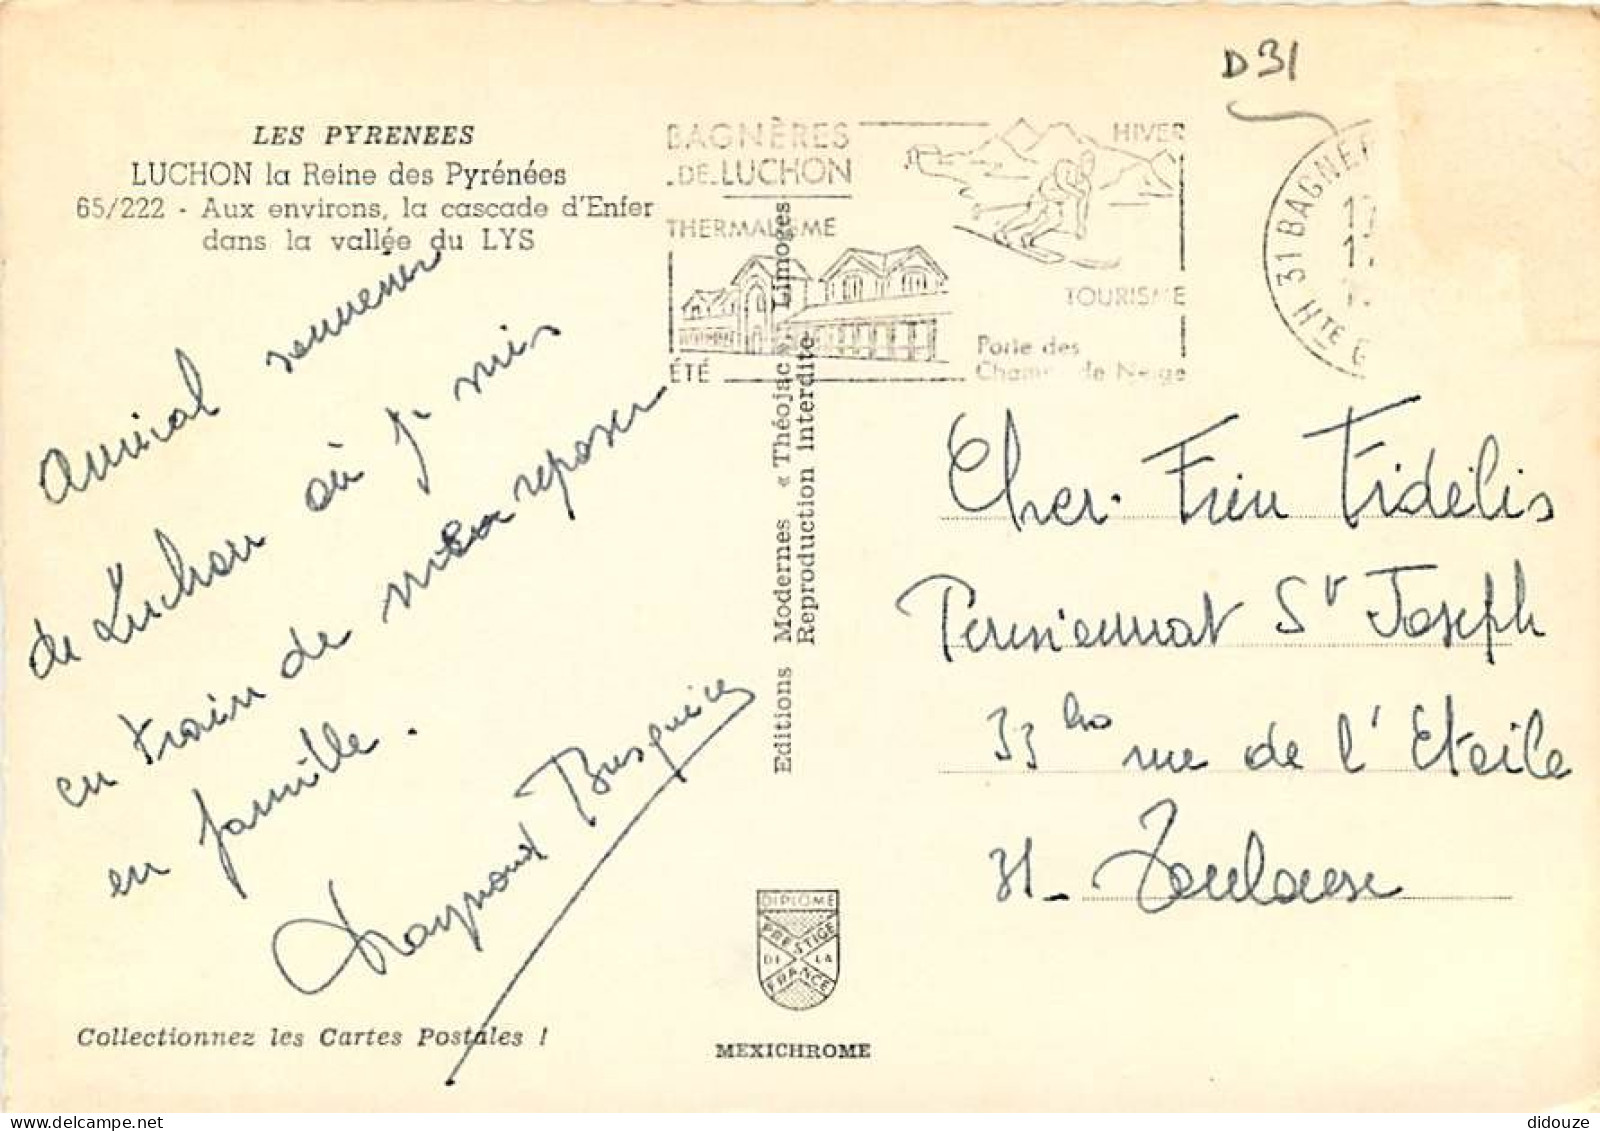 D31
LES PYRENEES
LUCHON la Reine des Pyrénées
65/222 - Aux environs, la cascade d'Enfer
dans la vallée du LYS
BAGNÈRES
DE LUCHON
HIVER
THERMALISME
TOURISME
ÉTÉ
Porte des
Champs de Neige
31 BAGNER
17
17
Hte G
Amical souvenir
de Luchon où je suis
en train de me reposer
en famille.
Raymond
Editions Modernes « Théojac » Limoges
Reproduction interdite
Cher Frère Fidélis
Pensionnat St Joseph
33 rue de l'Etoile
31 - Toulouse
DIPLOME
PRESTIGE
DE LA
FRANCE
MEXICHROME
Collectionnez les Cartes Postales !
didouze